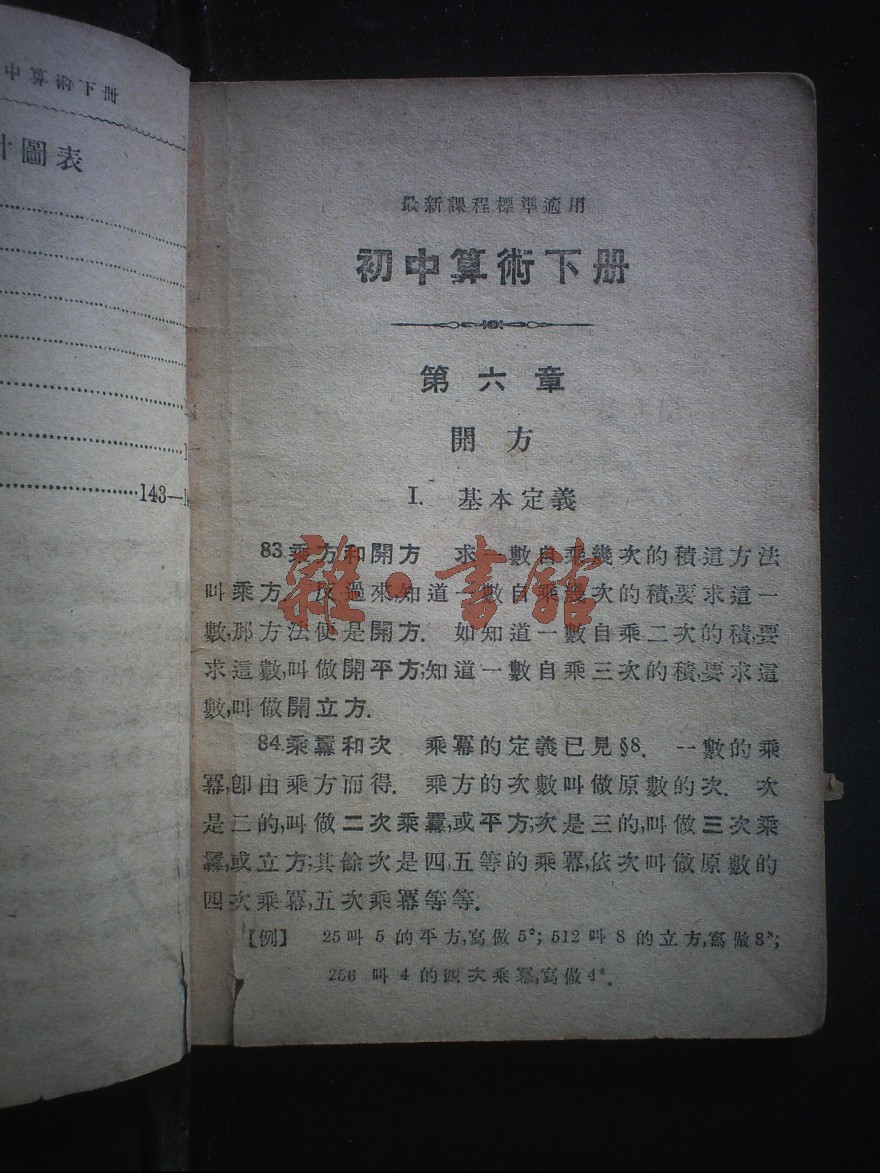 中算術下冊
計圖表
143—1
最新課程標準適用
初中算術下册
第六章
開方
I. 基本定義
83.乘方和開方 求一數自乘幾次的積這方法
叫乘方. 反過來,知道一數自乘幾次的積,要求這一
數,那方法便是開方. 如知道一數自乘二次的積,要
求這數,叫做開平方;知道一數自乘三次的積,要求這
數,叫做開立方.
84.乘羃和次 乘冪的定義已見§8. 一數的乘
冪,卽由乘方而得. 乘方的次數叫做原數的次. 次
是二的,叫做二次乘羃,或平方;次是三的,叫做三次乘
羃,或立方;其餘次是四,五等的乘冪,依次叫做原數的
四次乘冪,五次乘冪等等.
【例】 25叫5的平方,寫做5²; 512叫8的立方,寫做8³;
256叫4的四次乘冪,寫做4⁴.
雜·書館